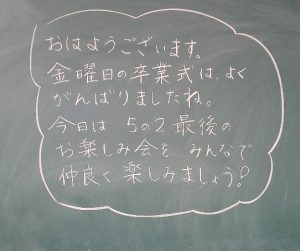 おはようございます。
金曜日の卒業式は、よく
がんばりましたね。
今日は 5の2 最後の
お楽しみ会を みんなで
仲良く 楽しみましょう?